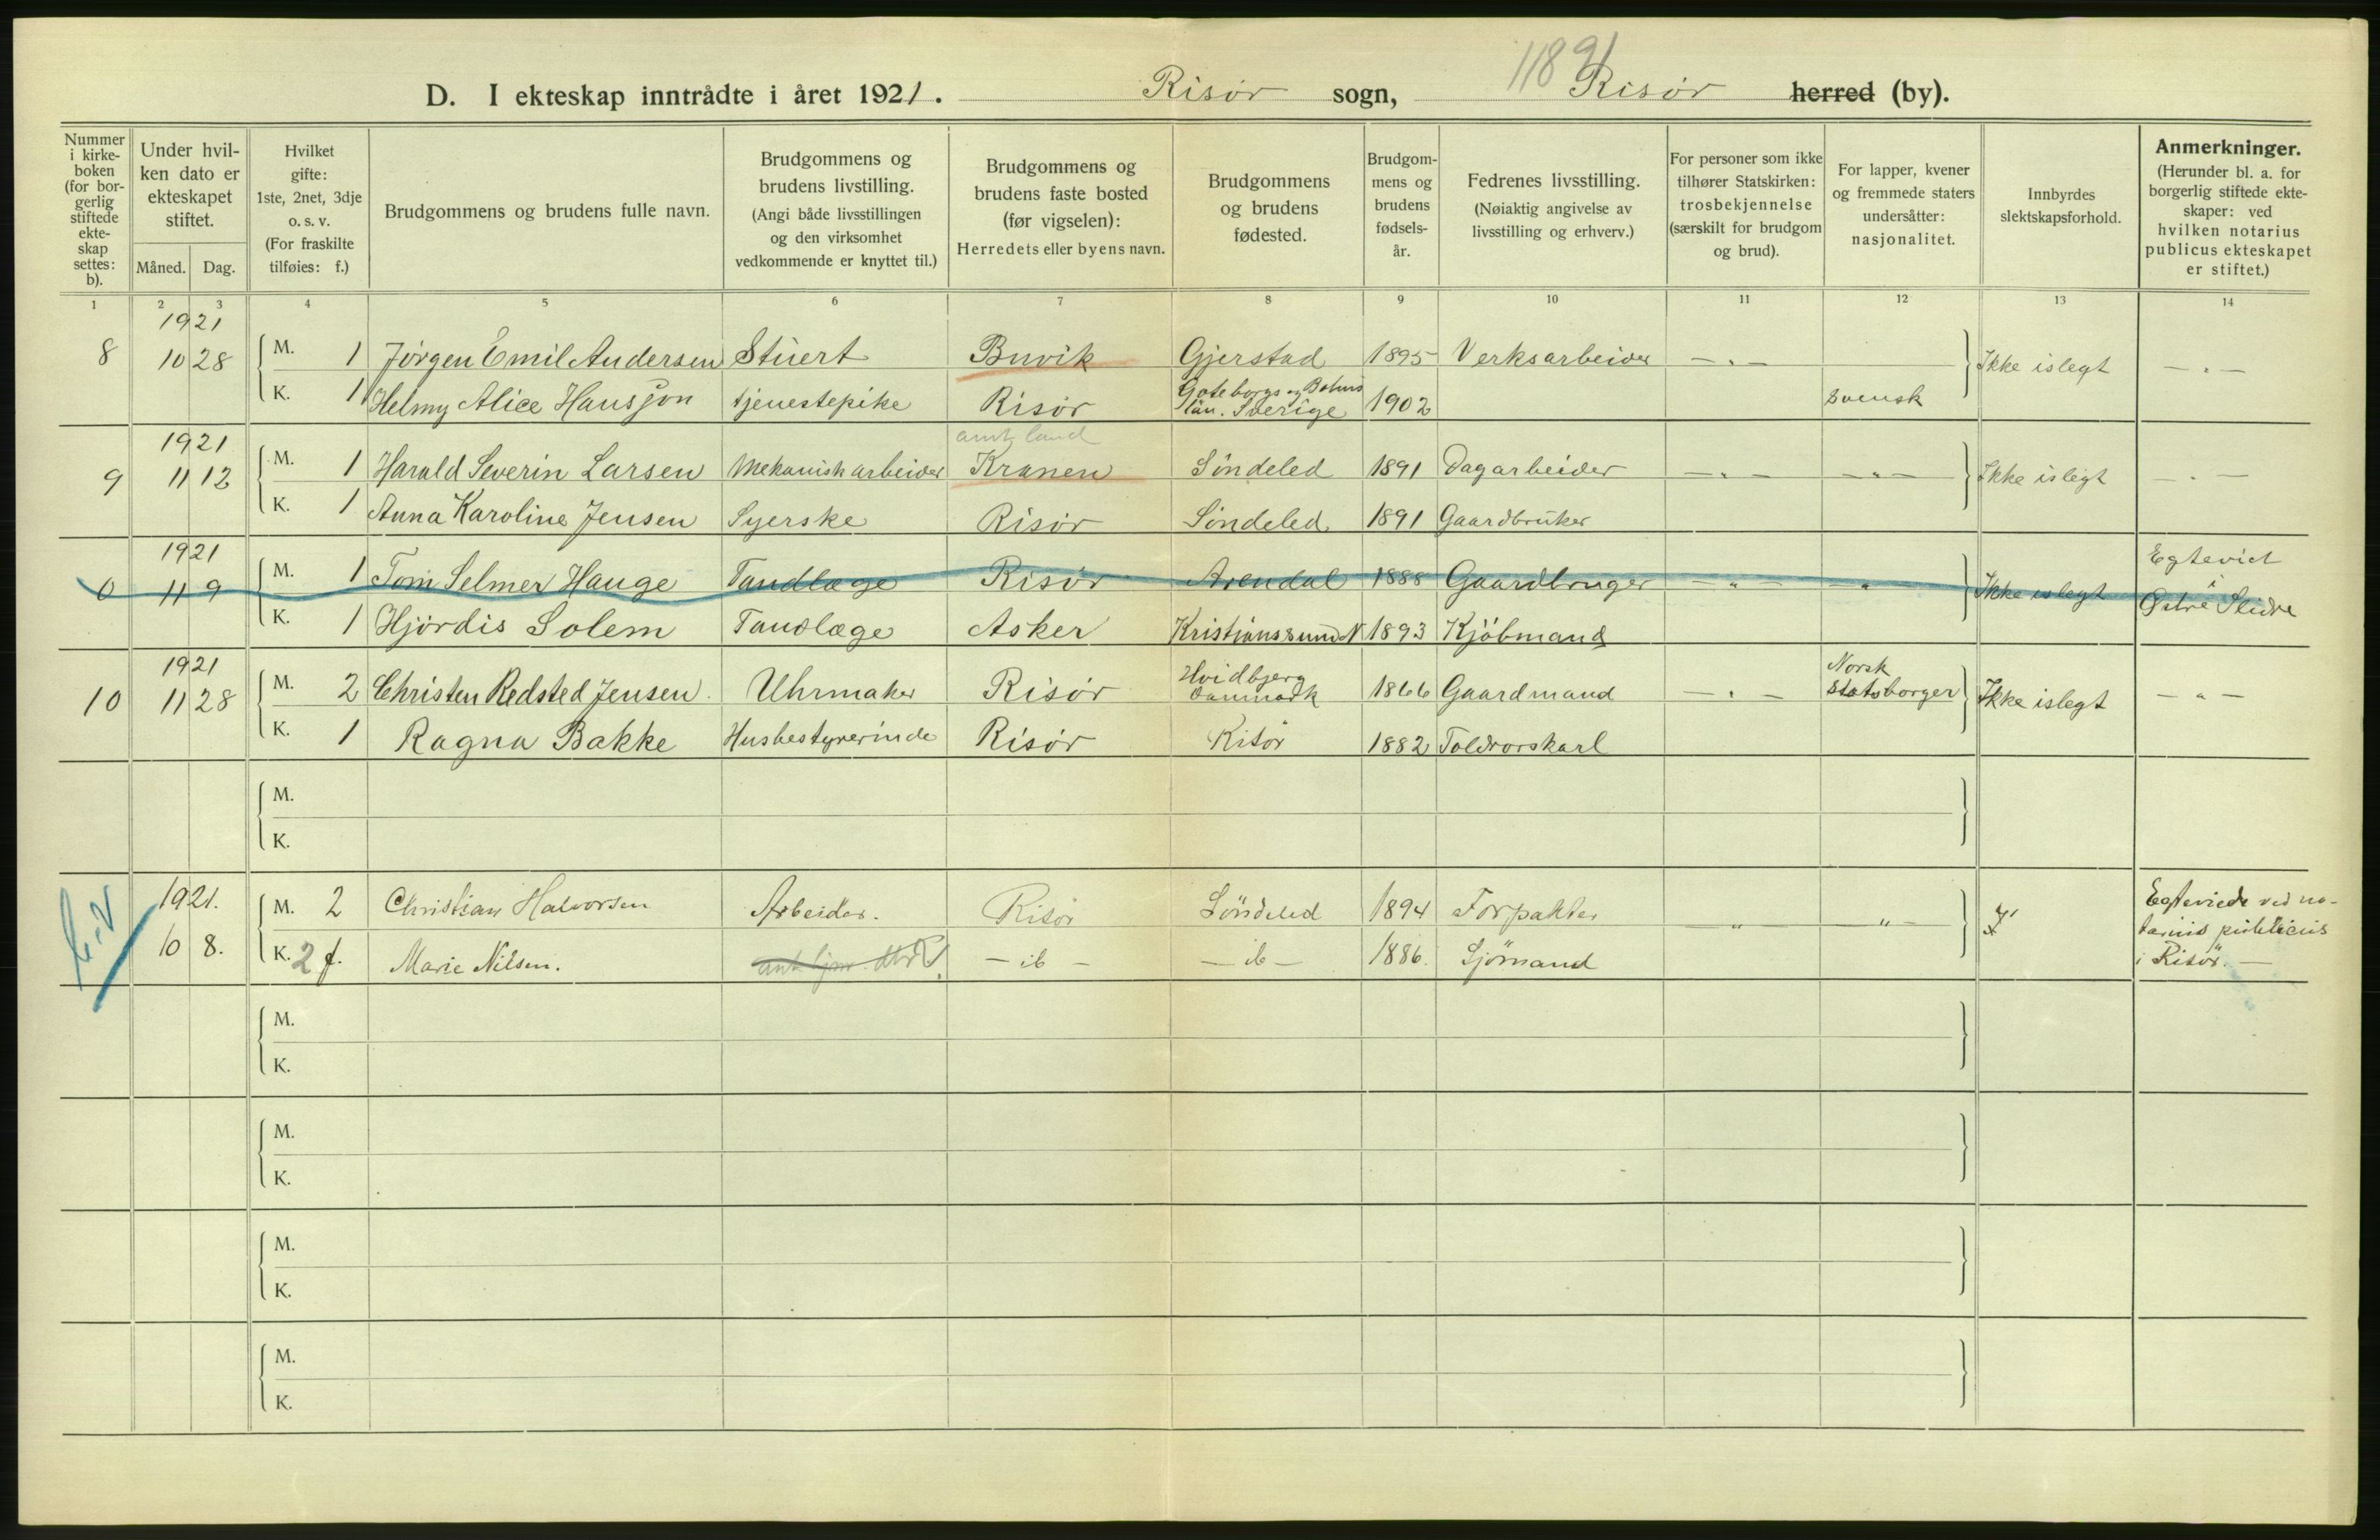 1189
D. I ekteskap inntrådte i året 1921. Risör sogn, Risör herred (by).
Nummer i kirkeboken (for borgerlig stiftede ekteskap settes: b).
Under hvilken dato er ekteskapet stiftet.
Måned. Dag.
Hvilket gifte: 1ste, 2net, 3dje o. s. v. (For fraskilte tilføies: f.)
Brudgommens og brudens fulle navn.
Brudgommens og brudens livstilling. (Angi både livsstillingen og den virksomhet vedkommende er knyttet til.)
Brudgommens og brudens faste bosted (før vigselen): Herredets eller byens navn.
Brudgommens og brudens fødested.
Brudgommens og brudens fødselsår.
Fedrenes livsstilling. (Nøiaktig angivelse av livsstilling og erhverv.)
For personer som ikke tilhører Statskirken: trosbekjennelse (særskilt for brudgom og brud).
For lapper, kvener og fremmede staters undersåtter: nasjonalitet.
Innbyrdes slektskapsforhold.
Anmerkninger. (Herunder bl. a. for borgerlig stiftede ekteskaper: ved hvilken notarius publicus ekteskapet er stiftet.)
1 2 3 4 5 6 7 8 9 10 11 12 13 14
1921
8 10 28 M. 1 Jörgen Emil Andersen Stuert Buvik Gjerstad 1895 Verksarbeider — " — Ikke islegt — " —
K. 1 Helmy Alice Hansson tjenestepike Risör Göteborgs og Bohus län. Sverige 1902 svensk
1921
9 11 12 M. 1 Harald Severin Larsen Mekanisk arbeider Kranen Söndeled 1891 Dagarbeider — " — — " — Ikke islegt — " —
K. 1 Anna Karoline Jensen Syerske Risör Söndeled 1891 Gaardbruker
1921
0 11 9 M. 1 Tom Selmer Hauge Tandlæge Risör Arendal 1888 Gaardbruger — " — " Ikke islegt Egteviet i Østre Slidre
K. 1 Hjördis Solem Tandlæge Asker Kristianssund N 1893 Kjöbmand
1921
10 11 28 M. 2 Christen Redsted Jensen. Uhrmaker Risör Hvidbjerg Danmark 1866 Gaardmand — " — Norsk Statsborger Ikke islegt — " —
K. 1 Ragna Bakke Husbestyrerinde Risör Risör 1882 Toldrorskarl
M.
K.
1921.
10 8. M. 2 Christian Halvorsen Arbeider. Risör Söndeled 1894 Forpakter — " — " — Egteviede ved notarius publicus i Risör. —
K. 2 f. Marie Nilsen. — ib — — ib — 1886. Sjömand
M.
K.
M.
K.
M.
K.
M.
K.